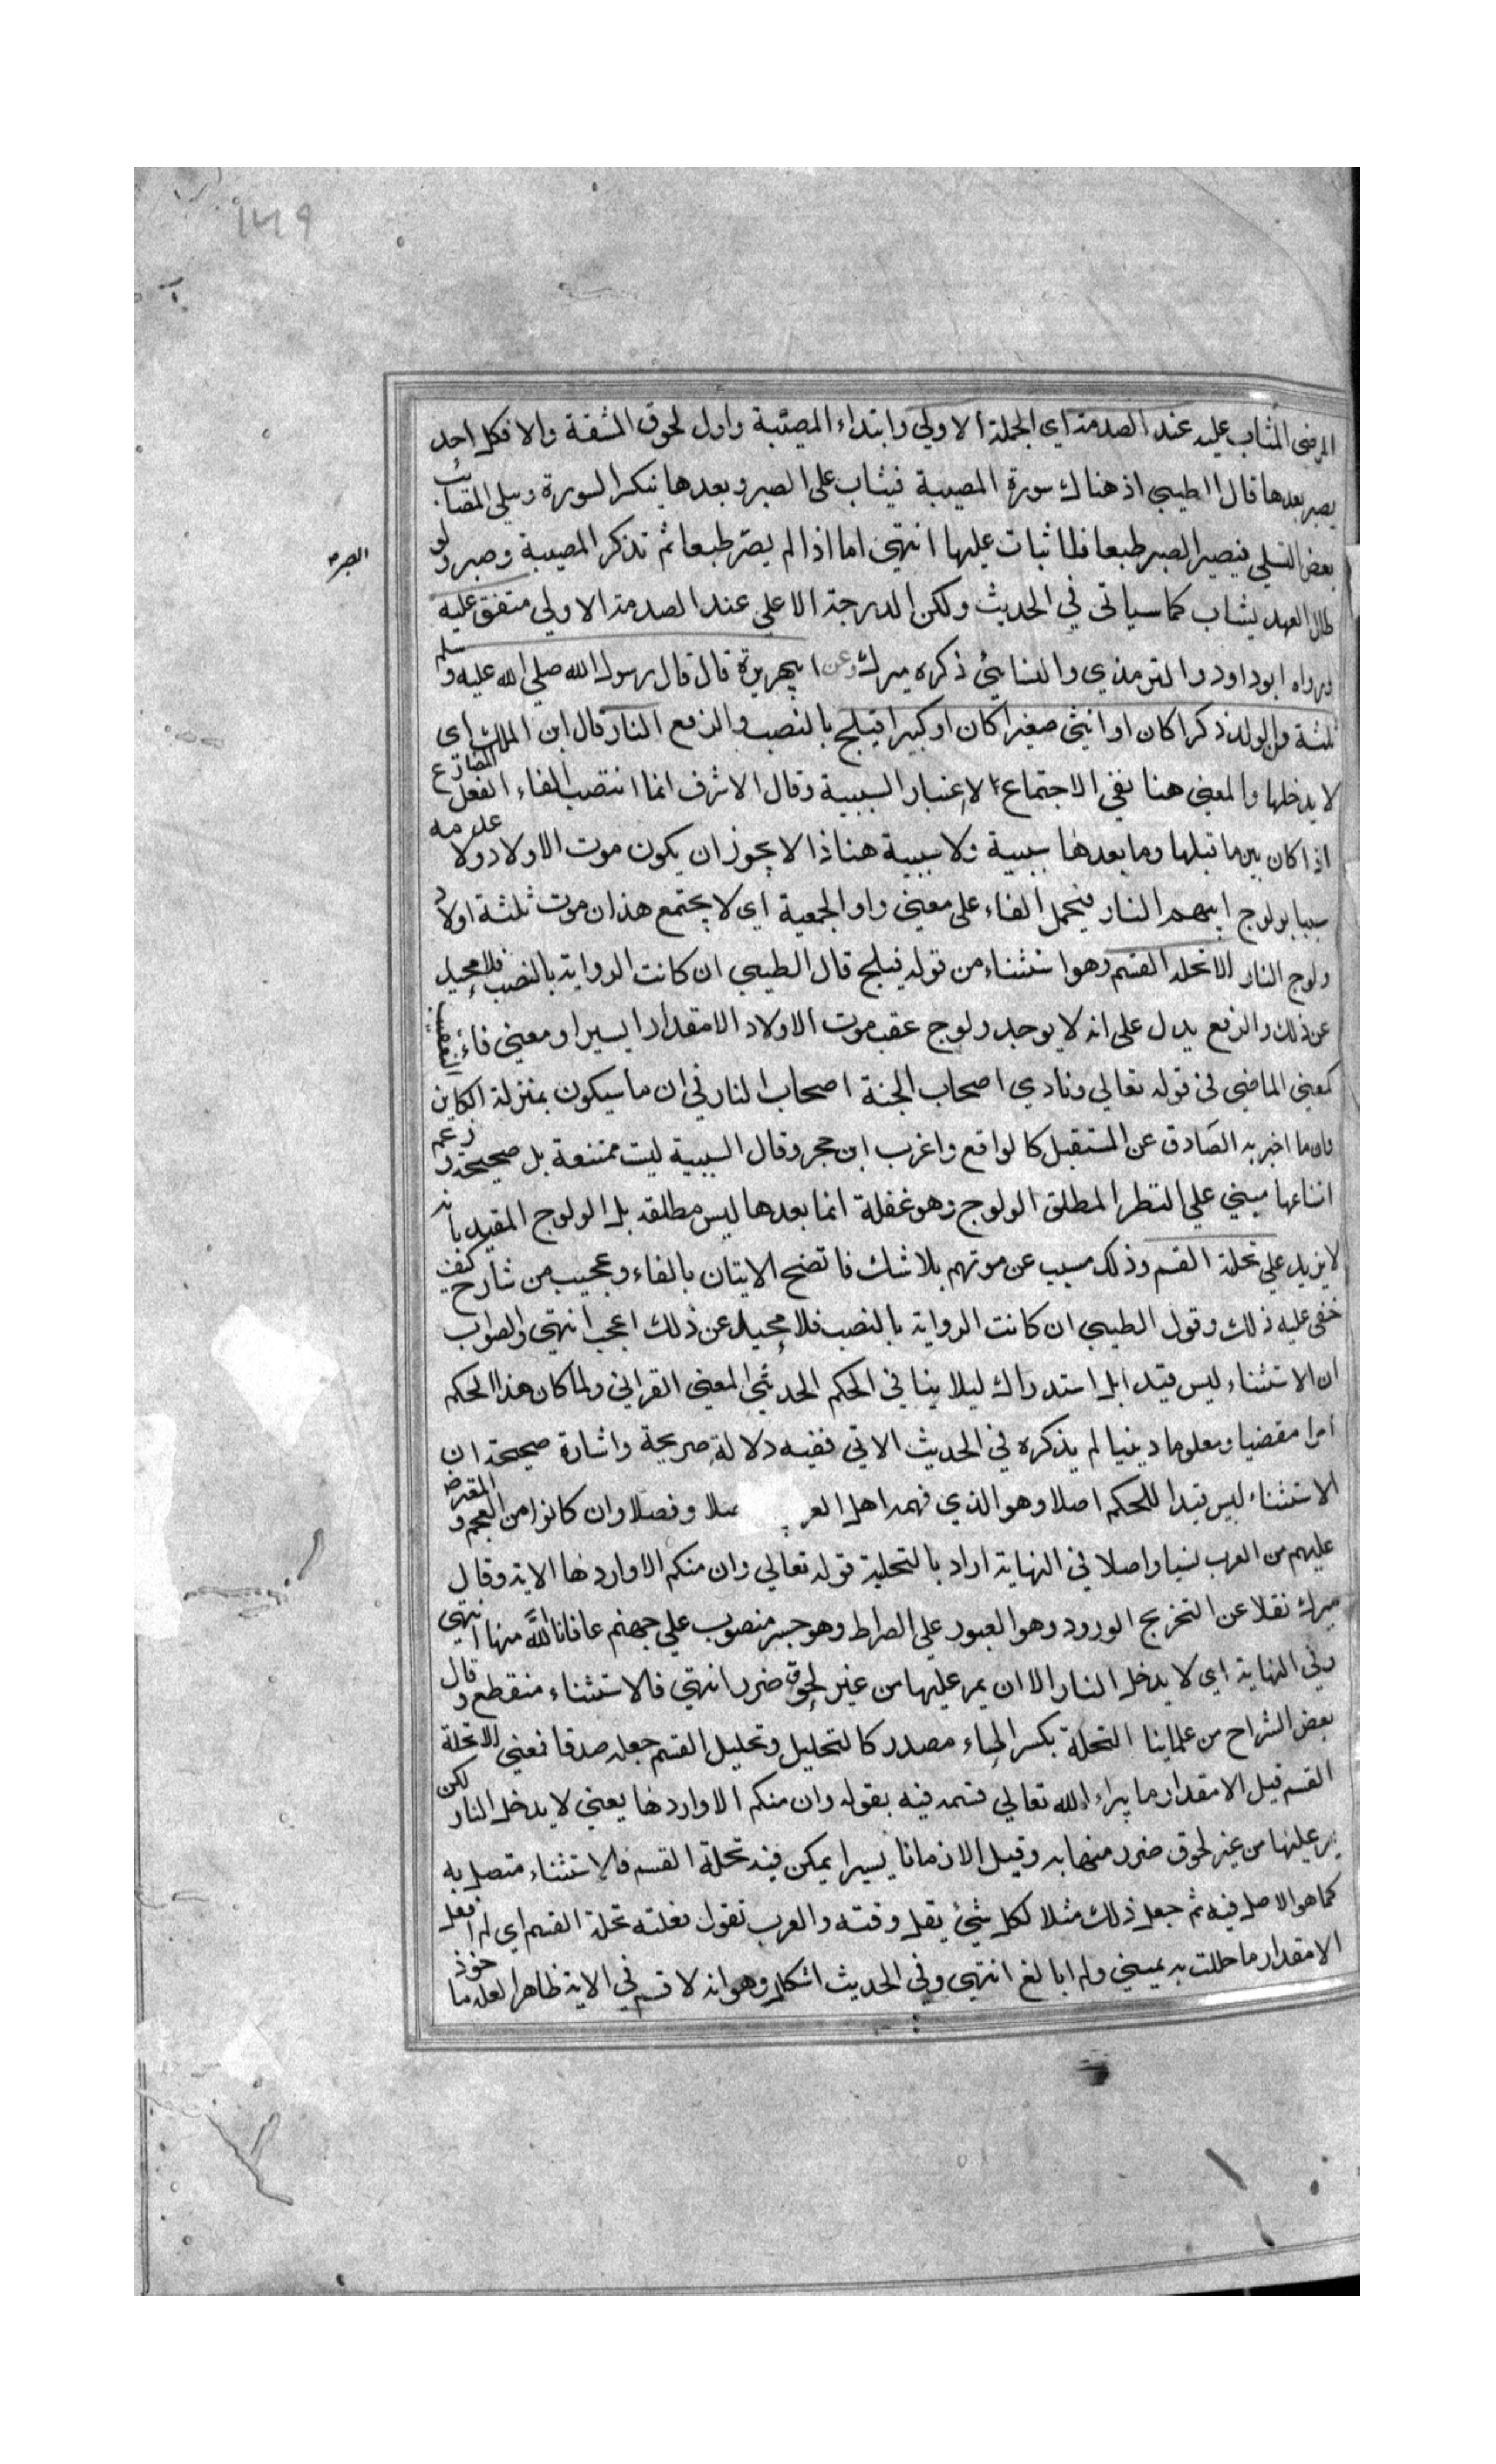 ١٣٩
المرضى المثاب عليه عند الصدمة اي الحملة الاولي وابتداء المصيبة واول لحوق المشقة والا فكل احد
يصبر بعدها قال الطيبي اذ هناك سورة المصيبة فيثاب على الصبر وبعدها ينكسر السورة ويسلي المصاب
بعض التسلي فيصير الصبر طبعا فلا يثاب عليها انتهى اما اذا لم يصر طبعا ثم تذكر المصيبة وصبر ولو
الصبر
طال العهد يثاب كما سياتي في الحديث ولكن الدرجة الاعلي عند الصدمة الاولي متفق عليه
ورواه ابو داود والترمذي والنسائي ذكره ميرك وعن ابي هريرة قال قال رسول الله صلي الله عليه وسلم
ثلثة من الولد ذكرا كان او انثى صغيرا كان او كبيرا فيلج بالنصب والرفع النار قال ابن الملك اي
لا يدخلها والمعني هنا نفي الاجتماع لا اعتبار السببية وقال الاشرف انما انتصب الفاء الفعل المضارع
اذا كان بين ما قبلها وما بعدها سببية ولا سببية هنا اذ لا يجوز ان يكون موت الاولاد ولا عدمه
سببا بولوج ابيهم النار فيحمل الفاء على معني واو الجمعية اي لا يجتمع هذان موت ثلثة اولاد
ولوج النار الا تحلة القسم وهو استثناء من قوله فيلج قال الطيبي ان كانت الرواية بالنصب فلا محيد
عن ذلك والرفع يدل على انه لا يوجد ولوج عقب موت الاولاد الا مقدارا يسيرا ومعني فاء التعقيب
كمعني الماضي في قوله تعالي ونادي اصحاب الجنة اصحاب النار في ان ما سيكون بمنزلة الكاين
وان ما اخبر به الصادق عن المستقبل كالواقع واغرب ابن حجر وقال السببية ليست ممتنعة بل صحيحة وزعم
انتفائها مبني علي النظر المطلق الولوج وهو غفلة انما بعدها ليس مطلقه بل الولوج المقيد بانه
لا يزيد علي تحلة القسم وذلك مسبب عن موتهم بلا شك فاتضح الايتان بالفاء وعجيب من شارح كيف
خفي عليه ذلك وقول الطيبي ان كانت الرواية بالنصب فلا محيد عن ذلك اعجب انتهي والصواب
ان الاستثناء ليس قيدا بل استدراك ليلا ينافي الحكم الحديثي المعني القراني ولما كان هذا الحكم
امرا مقضيا ومعلوما دينيا لم يذكره في الحديث الاتي ففيه دلالة صريحة واشارة صحيحة ان
الاستثناء ليس قيدا للحكم اصلا وهو الذي فهمه اهل العر صلا وفصلا وان كانوا من العجم والمعترض
عليهم من العرب نسبا واصلا في النهاية اراد بالتحلية قوله تعالي وان منكم الا واردها الاية وقال
ميرك نقلا عن التخريج الورود وهو العبور علي الصراط وهو جسر منصوب علي جهنم عافانا الله منها انتهي
وفي النهاية اي لا يدخل النار الا ان يمر عليها من غير لحوق ضرر انتهي فالاستثناء منقطع وقال
بعض الشراح من علماينا التحلة بكسر الحاء مصدر كالتحليل وتحليل القسم جعله صدقا فمعني الا تحلة
القسم قيل الا مقدار ما يبراء الله تعالي قسمه فيه بقوله وان منكم الا واردها يعني لا يدخل النار لكن
يمر عليها من غير لحوق ضرر منها به وقيل الا زمانا يسيرا يمكن فيه تحلة القسم فالاستثناء متصل به
كما هو الاصل فيه ثم جعل ذلك مثلا لكل شيئ يقل وقته والعرب تقول فعلته تحلة القسم اي لم افعل
الا مقدار ما حللت به يميني ولم ابالغ انتهي وفي الحديث اشكال وهو انه لا قسم في الاية ظاهرا لعله ماخوذ